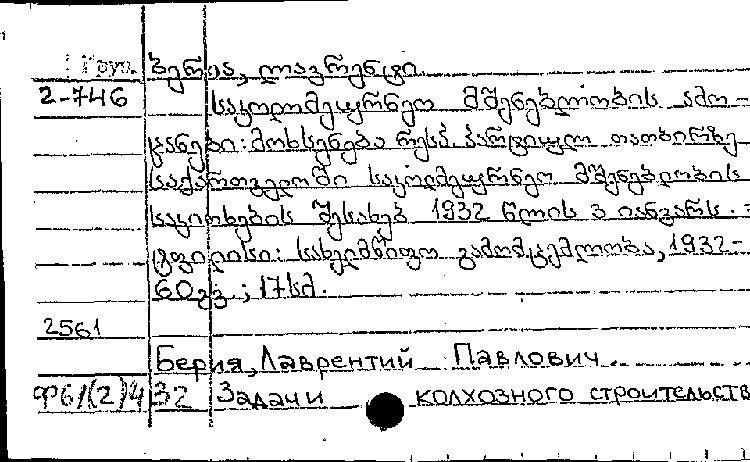 1 Груз. ბერია, ლავრენტი
2-746 საკოლმეურნეო მშენებლობის ამო-
ცანები: მოხსენება რესპ. პარტიულ თათბირზე
საქართველოში საკოლმეურნეო მშენებლობის
საკითხების შესახებ 1932 წლის 3 იანვარს. -
ტფილისი: სახელმწიფო გამომცემლობა, 1932 -
60გვ.; 17სმ.
2561
Берия, Лаврентий Павлович
996/(2)4 32 Задачи колхозного строительств